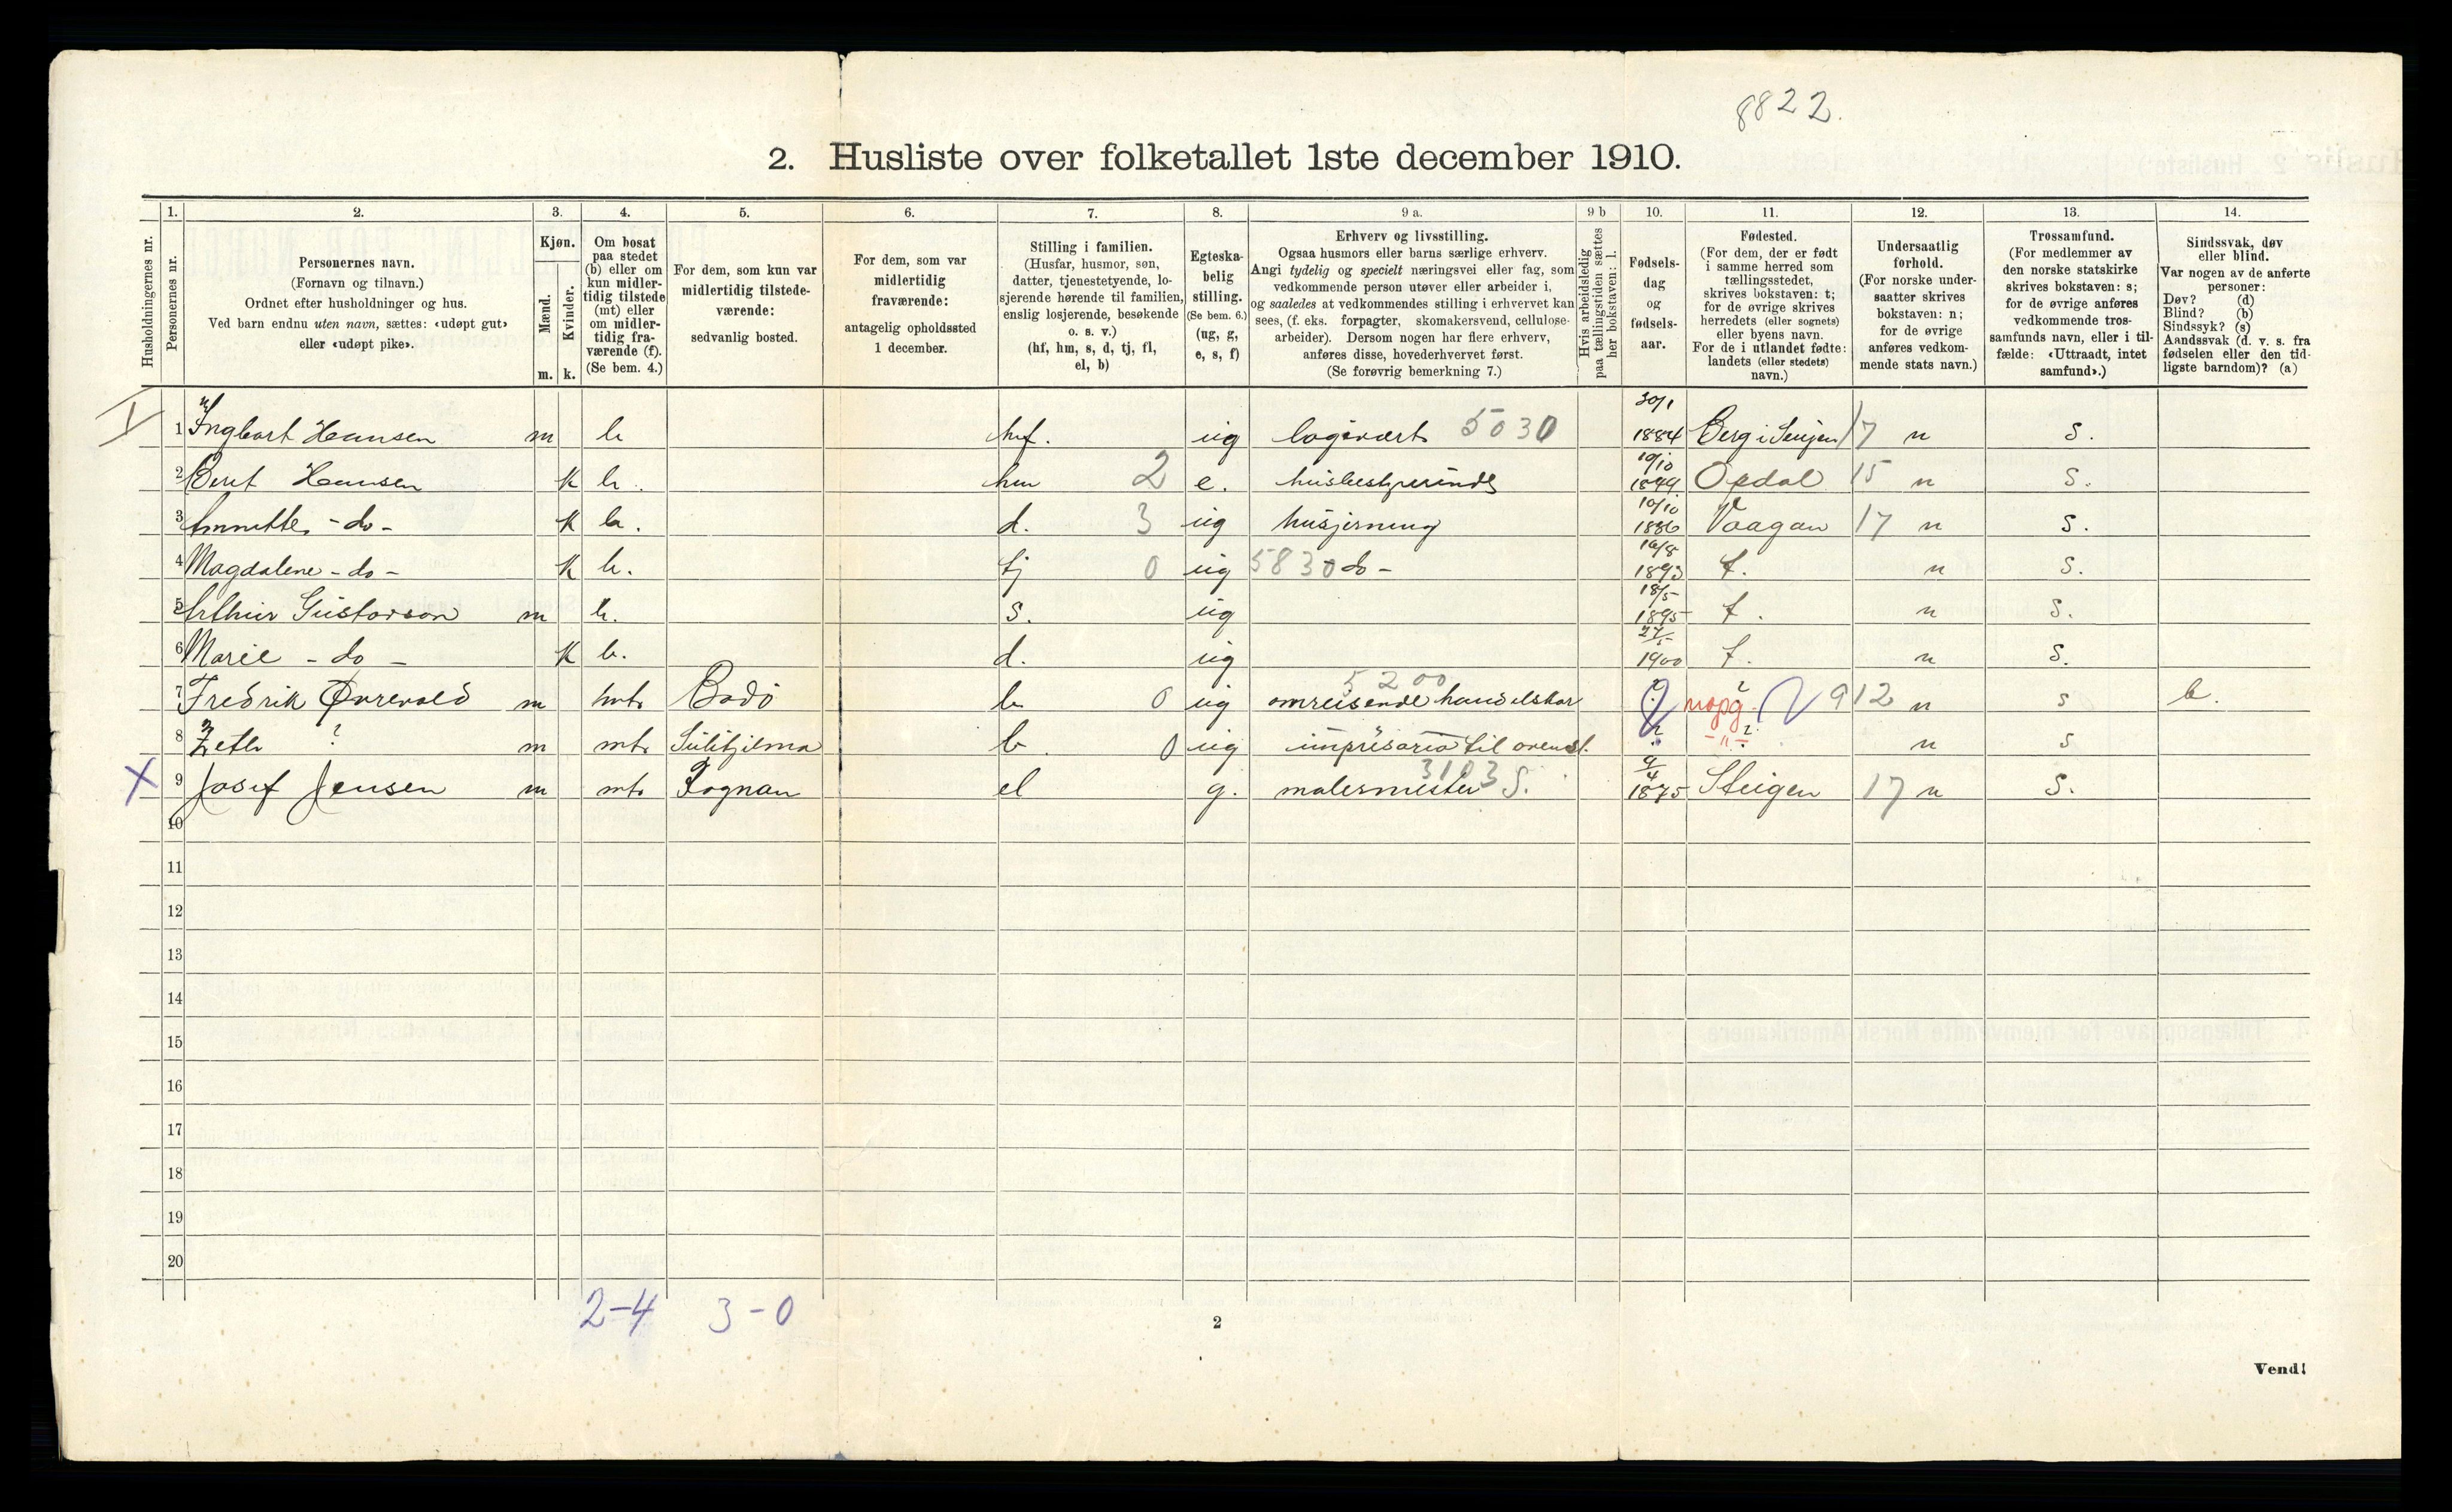 8822.
2. Husliste over folketallet 1ste december 1910.
Husholdningernes nr.
1. 2. 3. 4. 5. 6. 7. 8. 9 a. 9 b 10. 11. 12. 13. 14.
Personernes nr.
Personernes navn.
(Fornavn og tilnavn.)
Ordnet efter husholdninger og hus.
Ved barn endnu uten navn, sættes: «udøpt gut»
eller «udøpt pike».
Kjøn.
Mænd. Kvinder.
m. k.
Om bosat
paa stedet
(b) eller om
kun midler-
tidig tilstede
(mt) eller
om midler-
tidig fra-
værende (f).
(Se bem. 4.)
For dem, som kun var
midlertidig tilstede-
værende:
sedvanlig bosted.
For dem, som var
midlertidig
fraværende:
antagelig opholdssted
1 december.
Stilling i familien.
(Husfar, husmor, søn,
datter, tjenestetyende, lo-
sjerende hørende til familien,
enslig losjerende, besøkende
o. s. v.)
(hf, hm, s, d, tj, fl,
el, b)
Egteska-
belig
stilling.
(Se bem. 6.)
(ug, g,
e, s, f)
Erhverv og livsstilling.
Ogsaa husmors eller barns særlige erhverv.
Angi tydelig og specielt næringsvei eller fag, som
vedkommende person utøver eller arbeider i,
og saaledes at vedkommendes stilling i erhvervet kan
sees, (f. eks. forpagter, skomakersvend, cellulose-
arbeider). Dersom nogen har flere erhverv,
anføres disse, hovederhvervet først.
(Se forøvrig bemerkning 7.)
Hvis arbeidsledig
paa tællingstiden sættes
her bokstaven: l.
Fødsels-
dag
og
fødsels-
aar.
Fødested.
(For dem, der er født
i samme herred som
tællingsstedet,
skrives bokstaven: t;
for de øvrige skrives
herredets (eller sognets)
eller byens navn.
For de i utlandet fødte:
landets (eller stedets)
navn.)
Undersaatlig
forhold.
(For norske under-
saatter skrives
bokstaven: n;
for de øvrige
anføres vedkom-
mende stats navn.)
Trossamfund.
(For medlemmer av
den norske statskirke
skrives bokstaven: s;
for de øvrige anføres
vedkommende tros-
samfunds navn, eller i til-
fælde: «Uttraadt, intet
samfund».)
Sindssvak, døv
eller blind.
Var nogen av de anførte
personer:
Døv? (d)
Blind? (b)
Sindssyk? (s)
Aandssvak (d. v. s. fra
fødselen eller den tid-
ligste barndom)? (a)
1 Ingbart Hansen m b hf. ug logivært 5030 30/1 1884 Berg i Senjen 17 n S.
2 Berit Hansen k b. hm 2 e. husbestyrerinde 19/10 1849 Opdal 15 n S.
3 -do- k b. d. 3 ug husgjerning 10/10 1886 Vaagan 17 n S.
4 Magdalene -do- k b. tj 0 ug 5830 -do- 16/8 1893 t. n S.
5 Arthur Gustavson m b. s. ug 18/5 1895 t. n S.
6 Marie -do- k b. d. ug 27/5 1900 t. n S.
7 Fredrik m mt. Bodö b 0 ug 5200 omreisende handelskar ? ? uopg. 912 n s b.
8 Zeth ? m mt. Sulitjelma b. 0 ug impresario til ovenst. ? ? -"- n s
9 Josef Jensen m mt. Fognan el g. malermester 3103 S. 9/4 1875 Steigen 17 n S.
10
11
12
13
14
15
16
17
18
19
20
2-4 3-0
2
Vend!